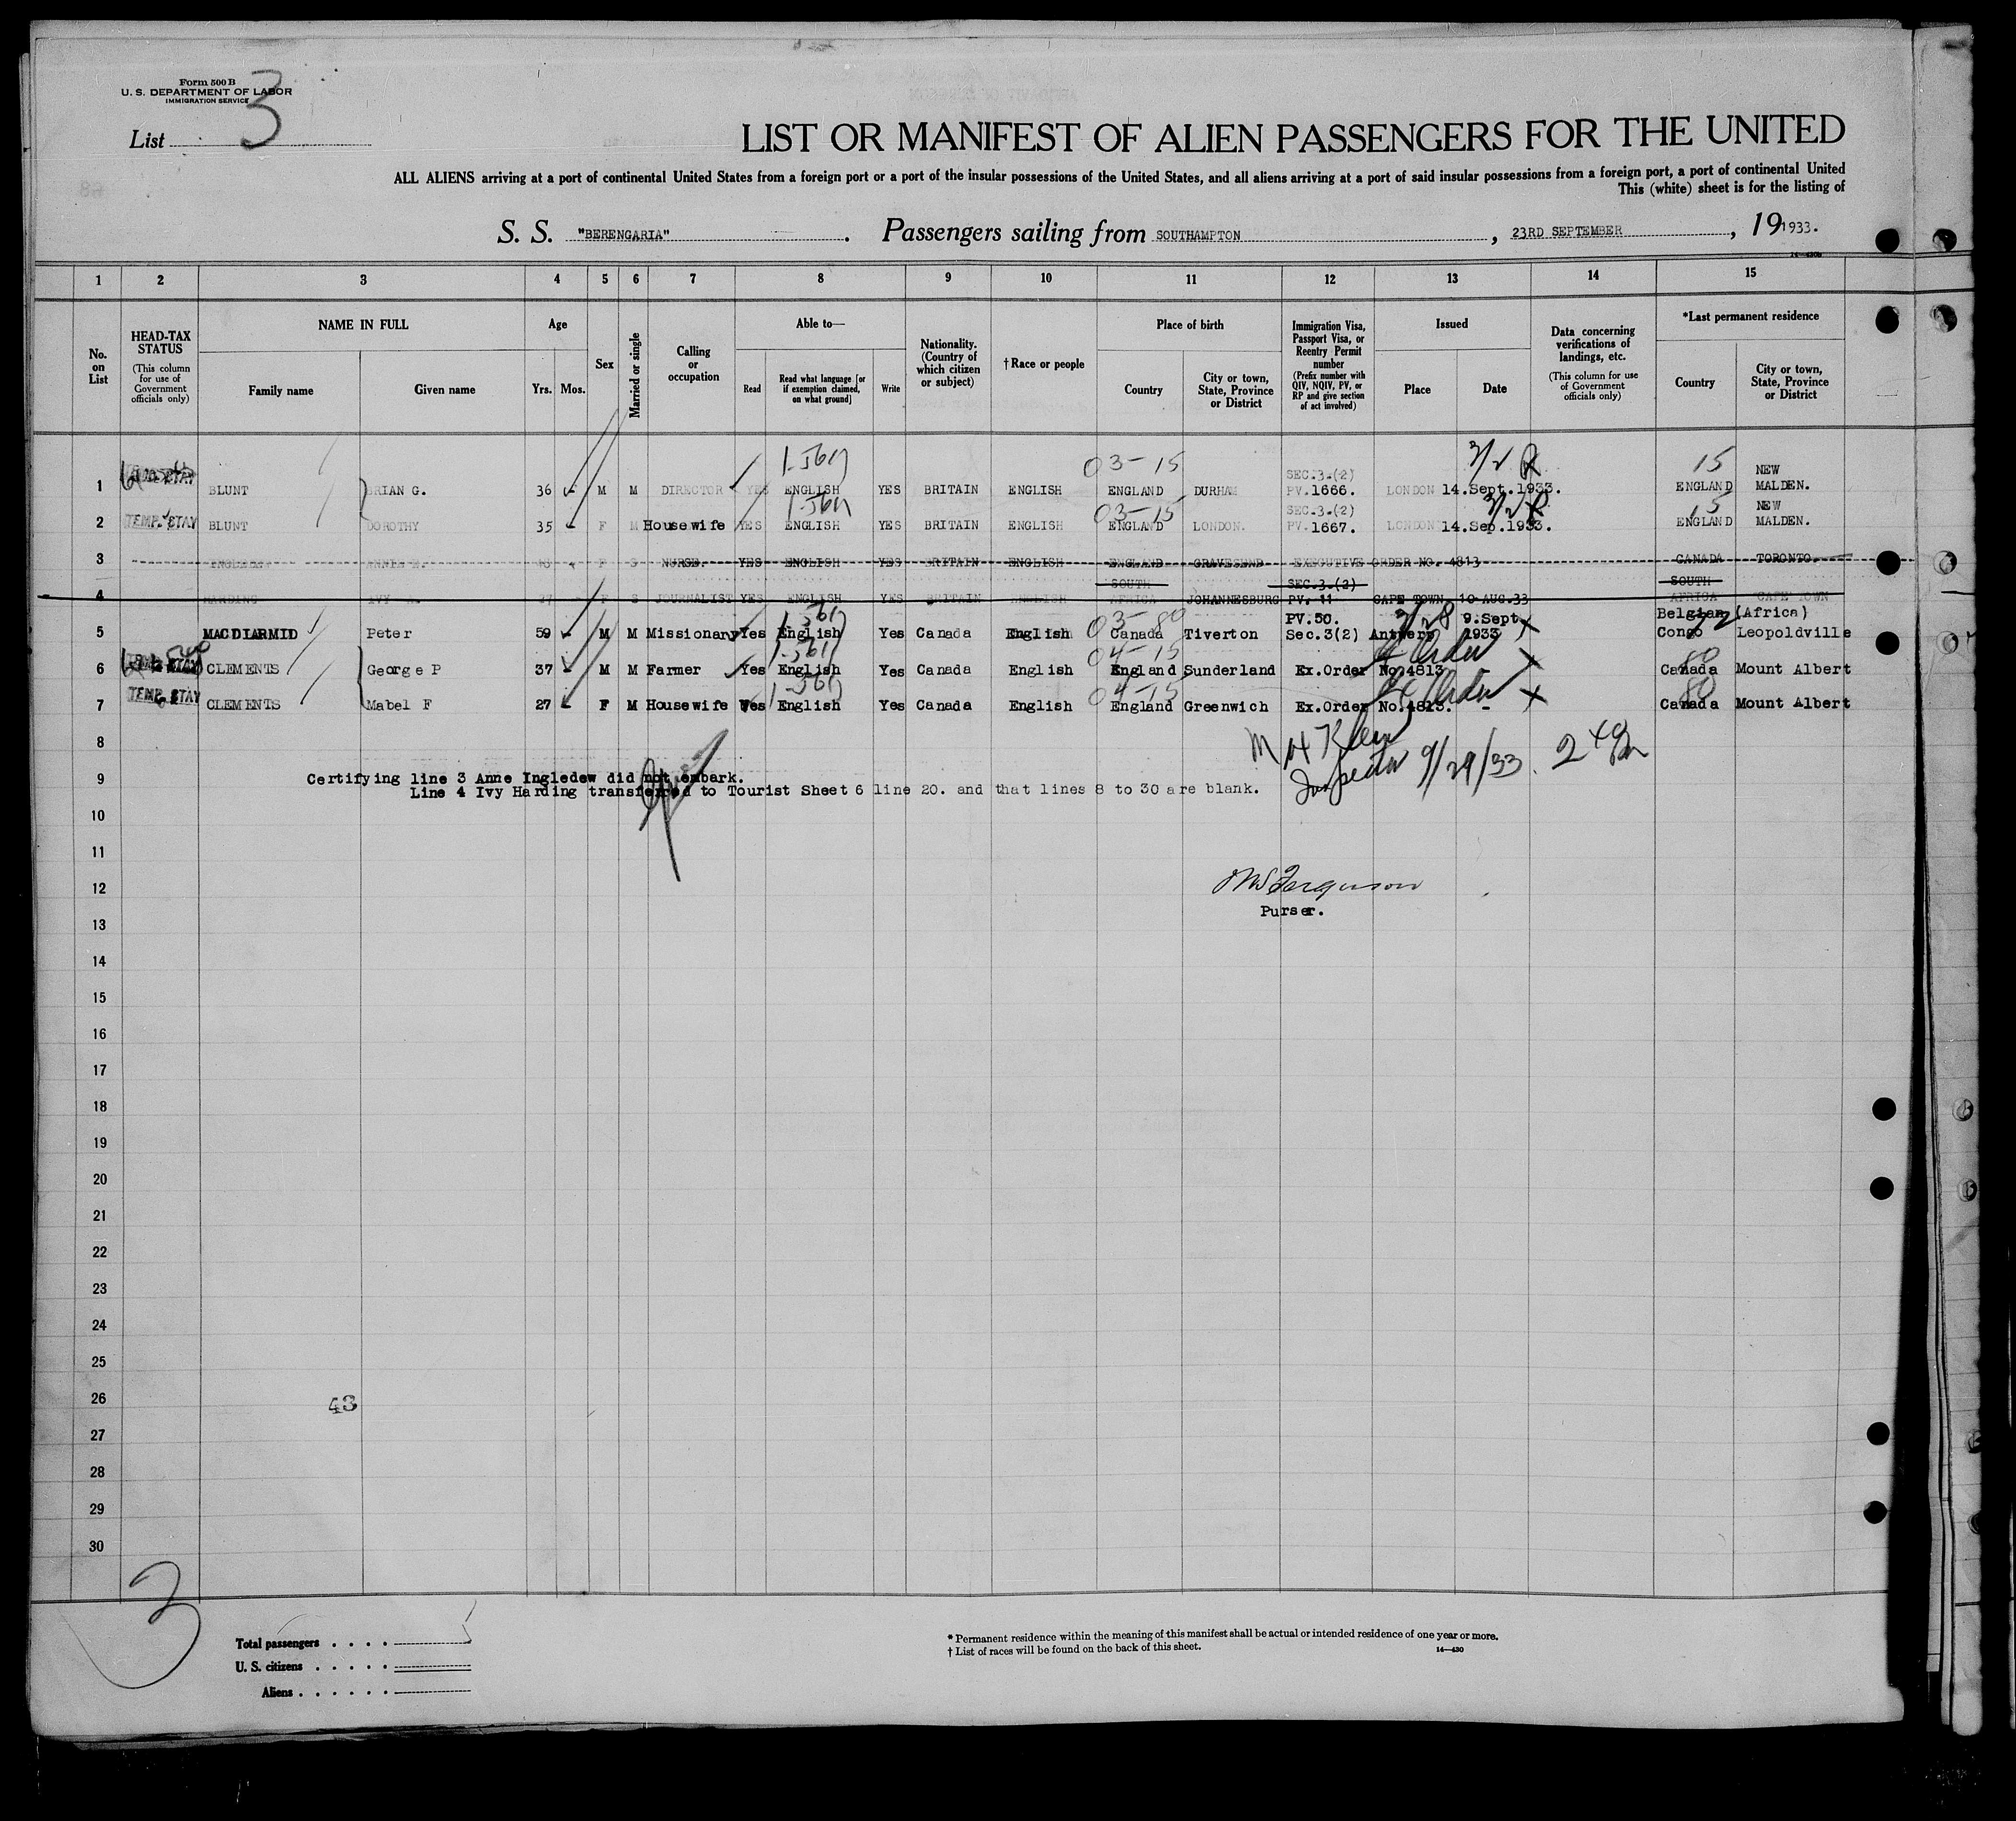 Form 500 B
U. S. DEPARTMENT OF LABOR
IMMIGRATION SERVICE
List 3
LIST OR MANIFEST OF ALIEN PASSENGERS FOR THE UNITED
ALL ALIENS arriving at a port of continental United States from a foreign port or a port of the insular possessions of the United States, and all aliens arriving at a port of said insular possessions from a foreign port, a port of continental United
This (white) sheet is for the listing of
S. S. "BERENGARIA" . Passengers sailing from SOUTHAMPTON , 23RD SEPTEMBER , 19 1933.
1 2 3 4 5 6 7 8 9 10 11 12 13 14 15
No. on List
HEAD-TAX STATUS (This column for use of Government officials only)
NAME IN FULL
Family name Given name
Age
Yrs. Mos.
Sex
Married or single
Calling or occupation
Able to—
Read Read what language [or if exemption claimed, on what ground] Write
Nationality. (Country of which citizen or subject)
† Race or people
Place of birth
Country City or town, State, Province or District
Immigration Visa, Passport Visa, or Reentry Permit number (Prefix number with QIV, NQIV, PV, or RP and give section of act involved)
Issued
Place Date
Data concerning verifications of landings, etc. (This column for use of Government officials only)
*Last permanent residence
Country City or town, State, Province or District
03-15 3/2 15
SEC.3.(2) NEW
1 BLUNT BRIAN G. 36 - M M DIRECTOR YES ENGLISH YES BRITAIN ENGLISH ENGLAND DURHAM PV.1666. LONDON 14.Sept.1933. ENGLAND MALDEN.
03-15 SEC.3.(2) 3/2 15 NEW
2 TEMP. STAY BLUNT DOROTHY 35 - F M Housewife YES ENGLISH YES BRITAIN ENGLISH ENGLAND LONDON. PV.1667. LONDON 14.Sep.1933. ENGLAND MALDEN.
3 F S NURSE. YES ENGLISH YES BRITAIN ENGLISH ENGLAND GRAVESEND EXECUTIVE ORDER NO. 4813 CANADA TORONTO.
SOUTH SEC.3.(2) SOUTH
4 HARDING IVY A. 37 F S JOURNALIST YES ENGLISH YES BRITAIN ENGLISH AFRICA JOHANNESBURG PV. 11 CAPE TOWN 10 AUG.33 AFRICA CAPE TOWN
03-80 PV.50. 9.Sept Belgian (Africa)
5 MACDIARMID Peter 59 - M M Missionary Yes English Yes Canada English Canada Tiverton Sec.3(2) Antwerp 1933 Congo Leopoldville
04-15 Ex Order 80
6 TEMP. STAY CLEMENTS George P 37 - M M Farmer Yes English Yes Canada English England Sunderland Ex.Order No.4813 - Canada Mount Albert
04-15 Ex Order 80
7 TEMP. STAY CLEMENTS Mabel F 27 - F M Housewife Yes English Yes Canada English England Greenwich Ex.Order No.4813. - Canada Mount Albert
8
M H Klein
Inspector 9/29/33.
9 Certifying line 3 Anne Ingledew did not embark.
Line 4 Ivy Harding transferred to Tourist Sheet 6 line 20. and that lines 8 to 30 are blank.
10
11
12 Ferguson
Purser.
13
14
15
16
17
18
19
20
21
22
23
24
25
26 43
27
28
29
30
3
Total passengers . . . .
U. S. citizens . . . . .
Aliens . . . . . .
* Permanent residence within the meaning of this manifest shall be actual or intended residence of one year or more.
† List of races will be found on the back of this sheet. 14—430